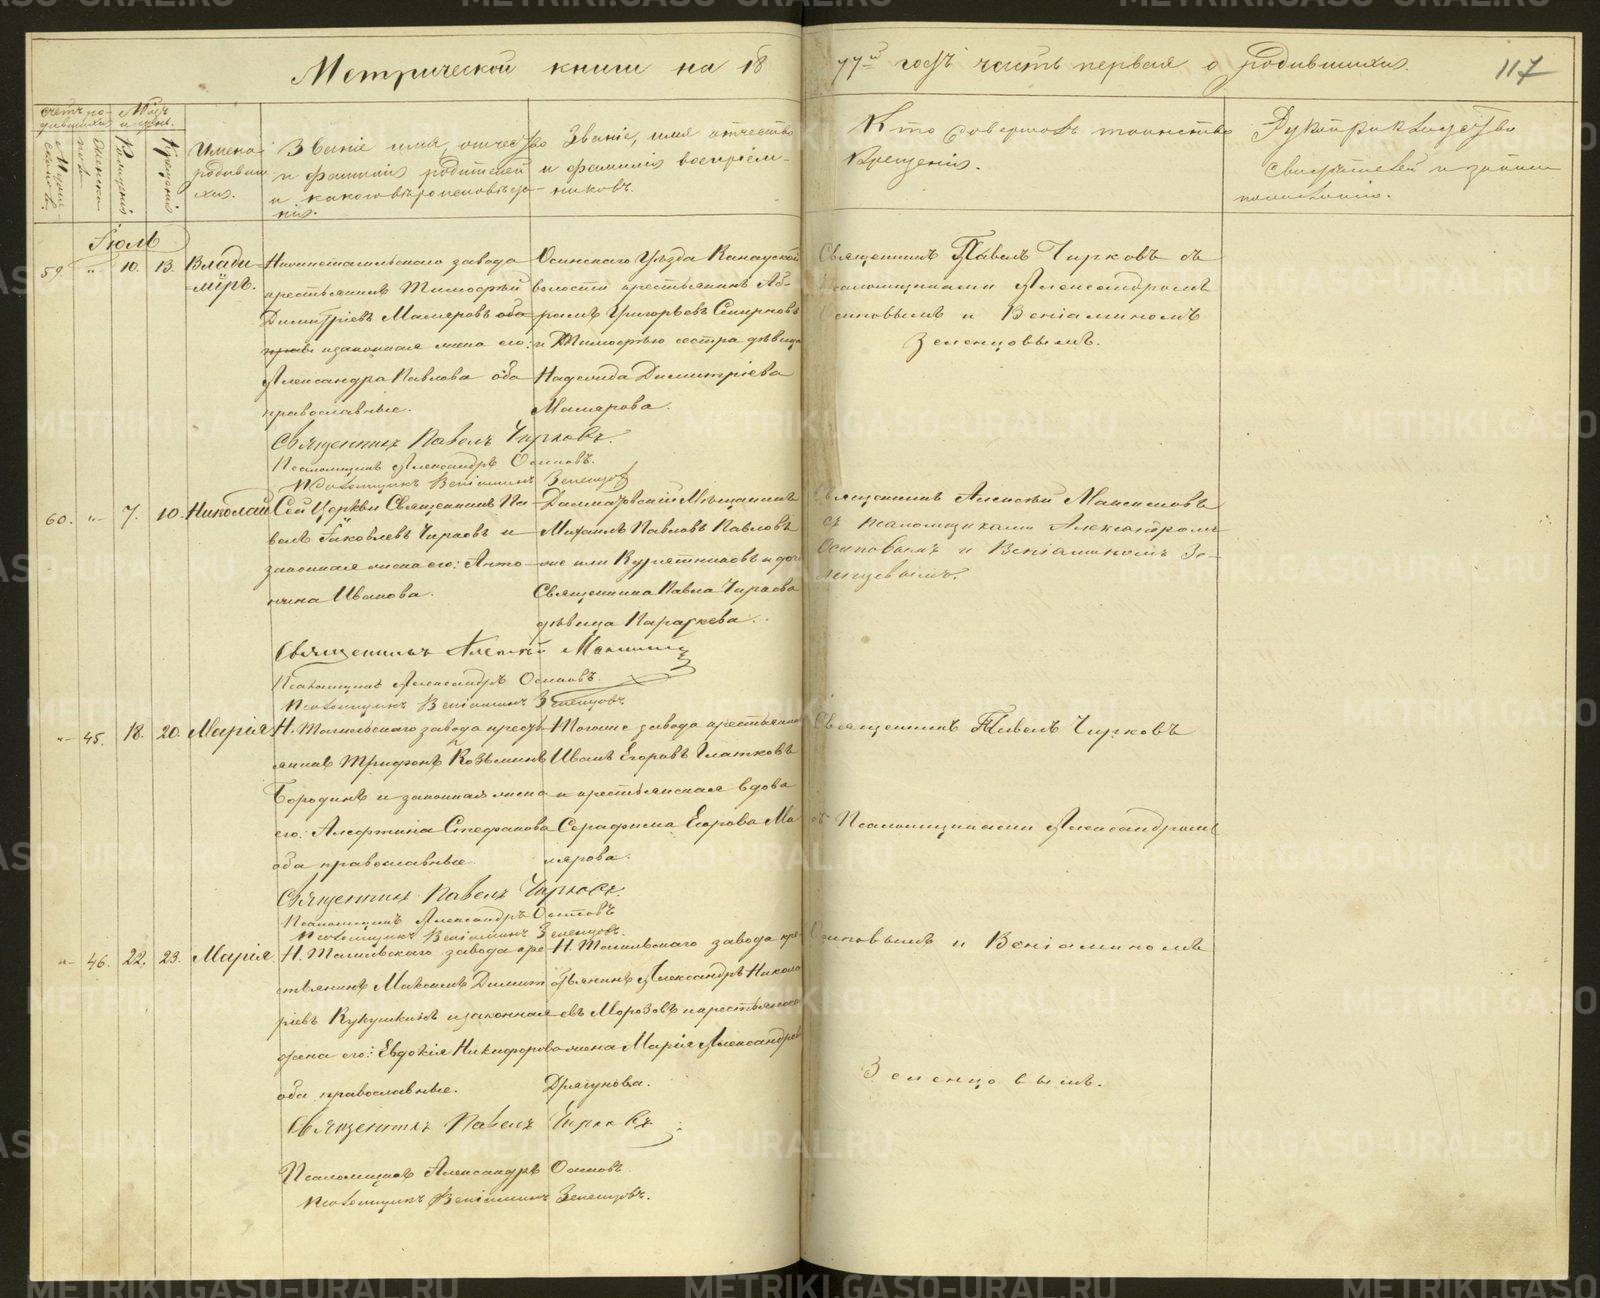 Метрической книги на 18
77й годъ часть первая о родившихся.
117
Счетъ родившихся
Мѣсяцъ и день.
Мужескаго
Женскаго
Рожденія
Крещенія
Имена родившихся.
Званіе имя, отчество
и фамилія родителей
и какого вѣроисповѣданія.
Званіе, имя отчество
и фамилія воспріемниковъ.
Кто совершалъ таинство
Крещенія.
Рукоприкладство
свидѣтелей
Іюль
59. " 10. 13. Влади-
міръ.
Нижнетагильскаго завода
крестьянинъ Тимофей
Димитріевъ Маляровъ оба
и законная жена его:
Александра Павлова оба
православные.
Осинскаго Уѣзда
волости крестьянинъ Аб-
рамъ Григорьевъ Смирновъ
и Тимофѣю сестра дѣвица
Надежда Димитріева
Малярова.
Священникъ Павелъ Чирковъ съ
Псаломщиками Александромъ
Осиповымъ и Веніаминомъ
Зеленцовымъ.
Священникъ Павелъ Чирковъ.
Псаломщикъ Александръ Осиповъ.
Псаломщикъ Веніаминъ Зеленцовъ
60. " 7. 10. Николай
Сей Церкви Священникъ Па-
велъ Яковлевъ Чирковъ и
законная жена его: Анто-
нина Иванова.
Мѣщанинъ
Михаилъ Павловъ Павловъ
же или Курятниковъ и дочь
Священника Павла Чиркова
дѣвица Параскева.
Священникъ Алексѣй
съ псаломщиками Александромъ
Осиповымъ и Веніаминомъ Зе-
ленцовымъ.
Священникъ Алексѣй
Псаломщикъ Александръ Осиповъ.
Псаломщикъ Веніаминъ Зеленцовъ.
" 45. 18. 20. Марія
Н. Тагильскаго завода кресть-
янинъ Трифонъ Козьминъ
Бородинъ и законная жена
его: Алефтина Стефанова
оба православные.
Тогоже завода крестьянинъ
Иванъ Егоровъ Гладковъ
и крестьянская вдова
Серафима Егорова Ма-
лярова.
Священникъ Павелъ Чирковъ
съ Псаломщиками Александромъ
Священникъ Павелъ Чирковъ.
Псаломщикъ Александръ Осиповъ
Псаломщикъ Веніаминъ Зеленцовъ.
" 46. 22. 23. Марія.
Н. Тагильскаго завода кре-
стьянинъ Максимъ Димит-
ріевъ Кукушкинъ и законная
жена его: Евдокія Никифорова
оба православные.
Н. Тагильскаго завода кре-
стьянинъ Александръ Никола-
евъ Морозовъ и крестьянская
жена Марія Александрова
Драгунова.
Осиповымъ и Веніаминомъ
Зеленцовымъ.
Священникъ Павелъ Чирковъ
Псаломщикъ Александръ Осиповъ
Псаломщикъ Веніаминъ Зеленцовъ.
METRIKI.GASO-URAL.RU